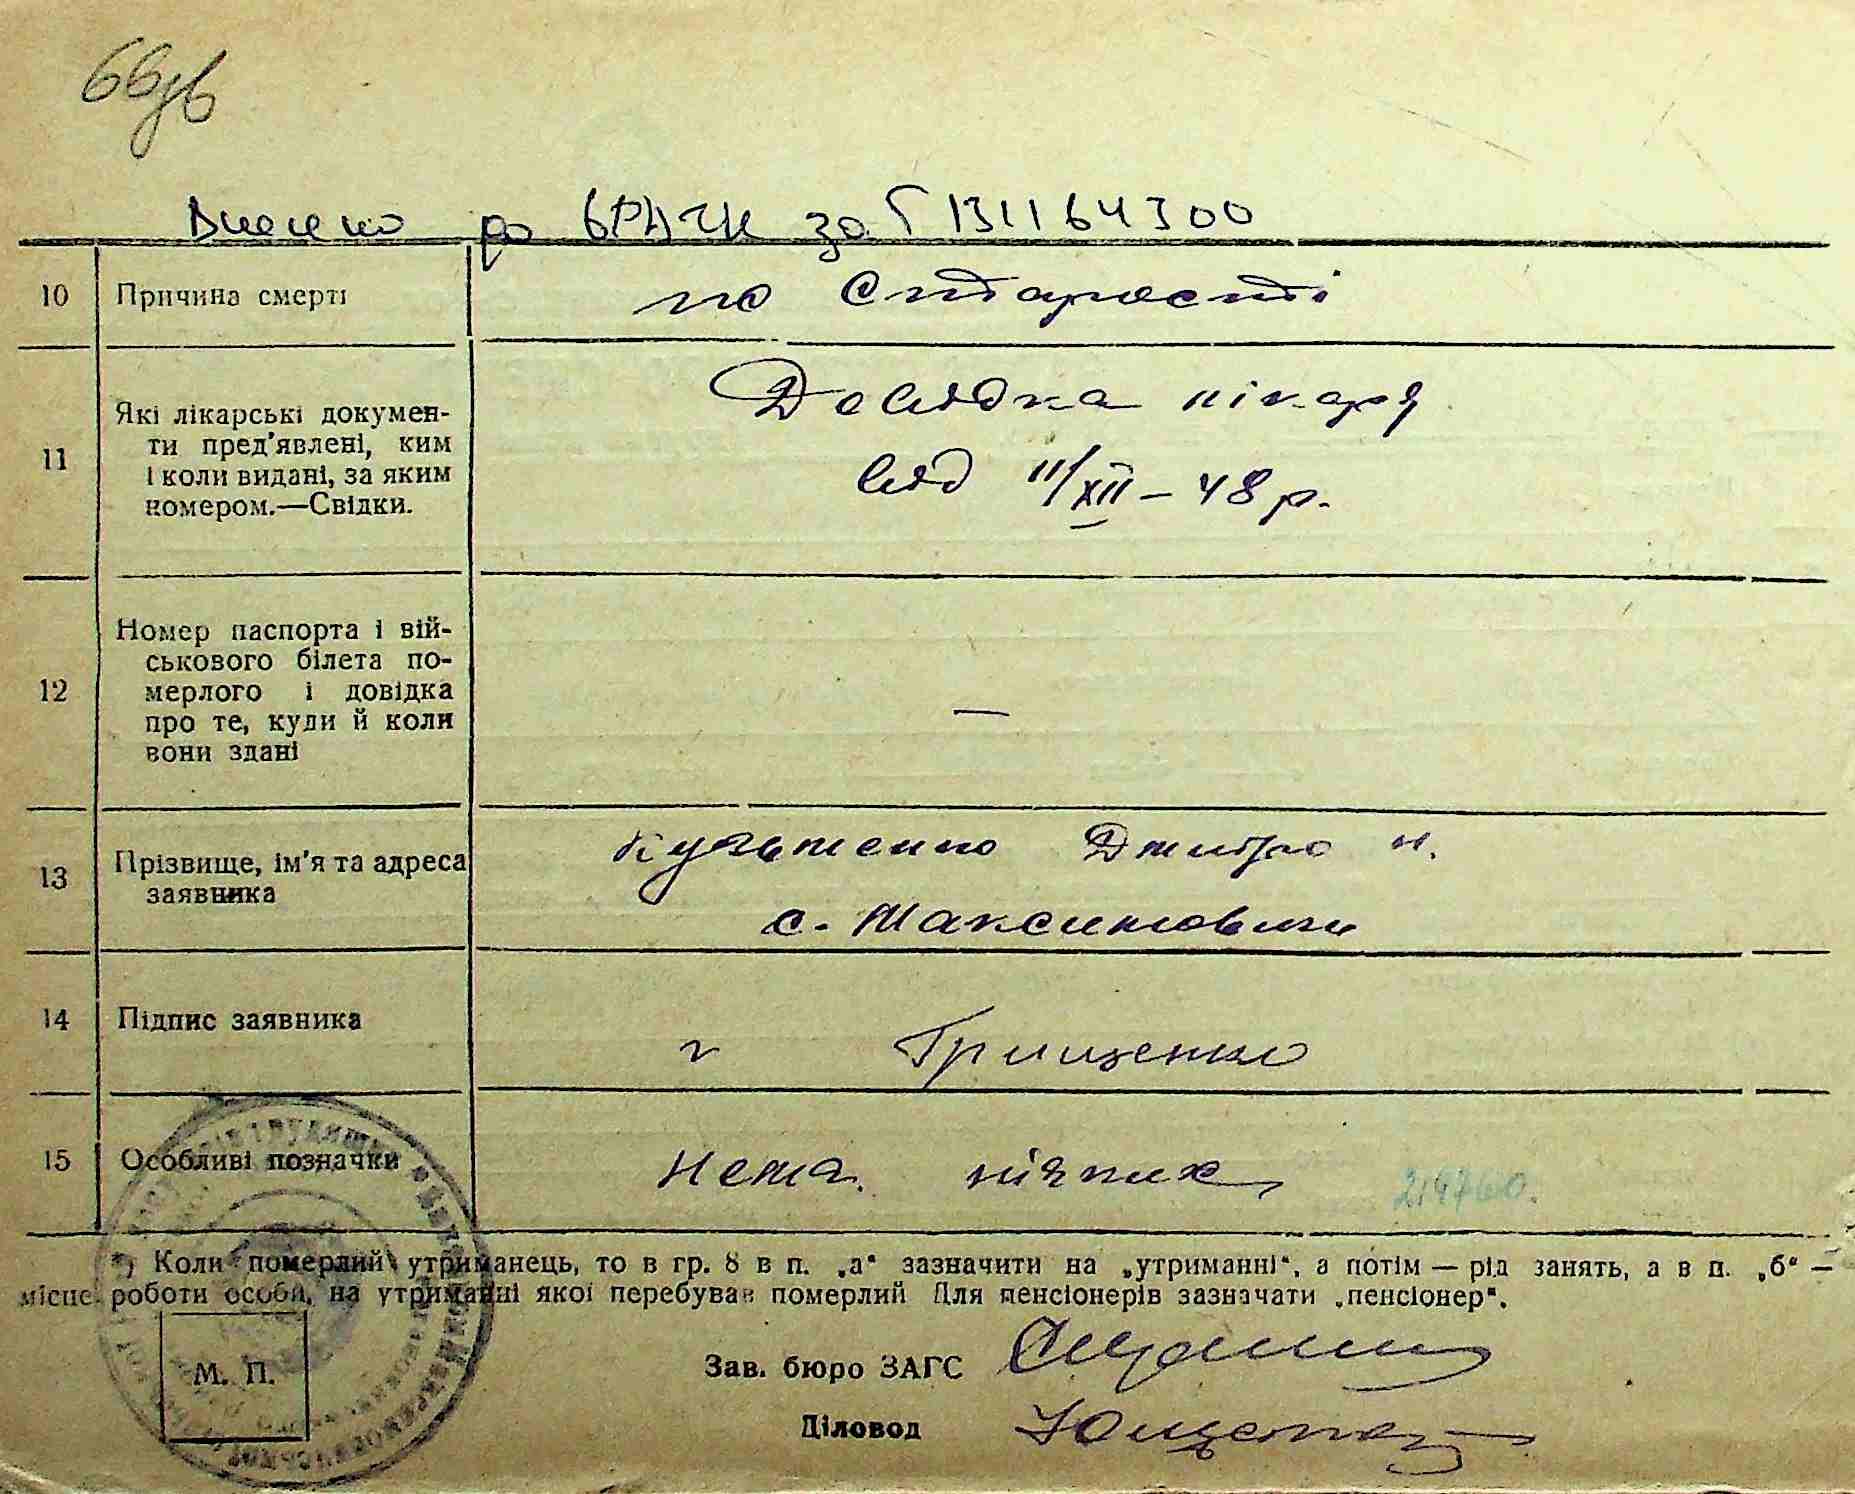 Внесено до ЄРАЦС за 131164300
10 Причина смерті по старості
11 Які лікарські докумен-
ти пред'явлені, ким
і коли видані, за яким
номером.—Свідки.
Довідка лікаря
від 11/XII – 48 р.
12 Номер паспорта і вій-
ськового білета по-
мерлого і довідка
про те, куди й коли
вони здані
—
13 Прізвище, ім'я та адреса
заявника
Кузьменко Дмитро
с. Максимовичи
14 Підпис заявника Грищенко
15 Особливі позначки Нема ніяких 219760.
*) Коли померлий утриманець, то в гр. 8 в п. „а“ зазначити на „утриманні“, а потім — рід занять, а в п. „б“ —
місце роботи особи, на утриманні якої перебував померлий Для пенсіонерів зазначати „пенсіонер“.
М. П.
Зав. бюро ЗАГС
Діловод